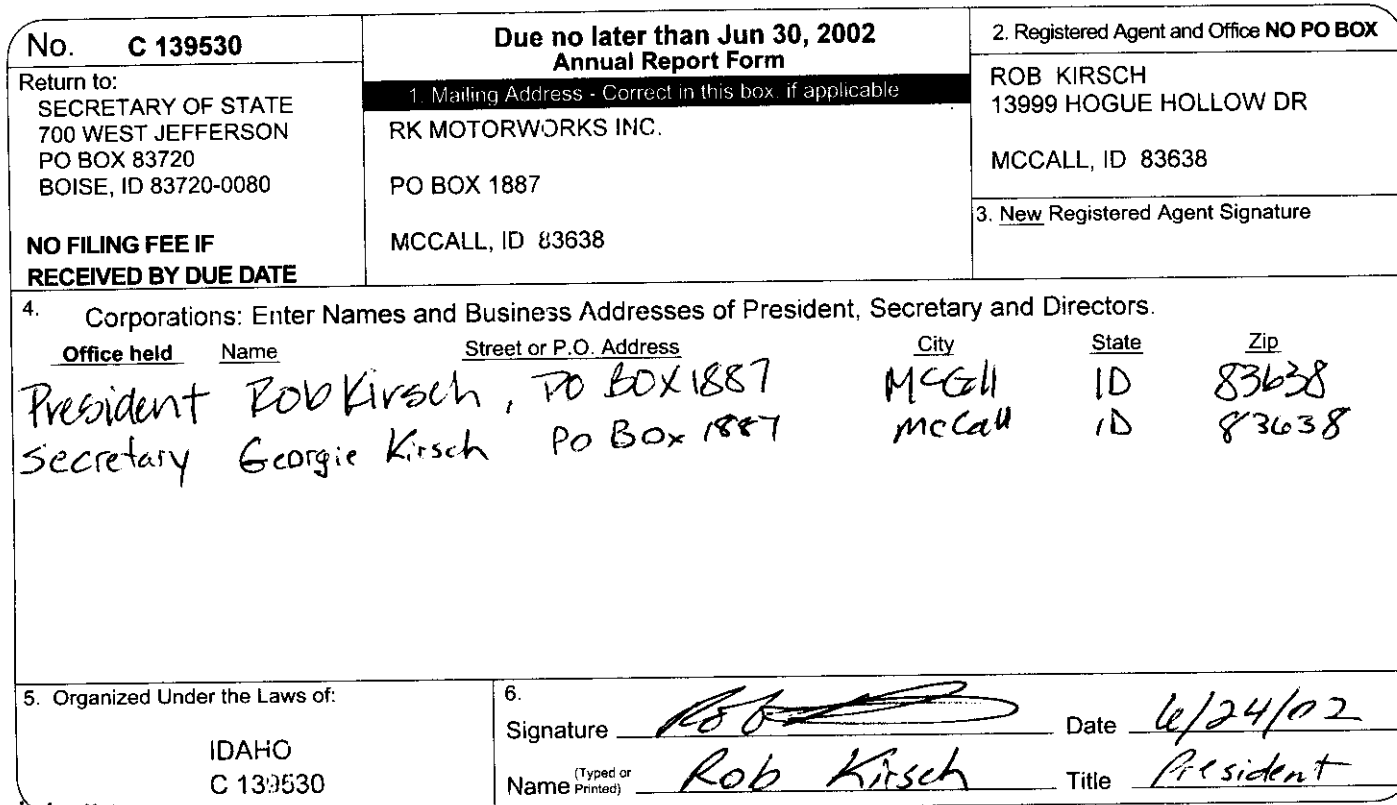 No. C 139530
Return to:
SECRETARY OF STATE
700 WEST JEFFERSON
PO BOX 83720
BOISE, ID 83720-0080
NO FILING FEE IF
RECEIVED BY DUE DATE
Due no later than Jun 30, 2002
Annual Report Form
1. Mailing Address - Correct in this box, if applicable
RK MOTORWORKS INC.
PO BOX 1887
MCCALL, ID 83638
2. Registered Agent and Office NO PO BOX
ROB KIRSCH
13999 HOGUE HOLLOW DR
MCCALL, ID 83638
3. New Registered Agent Signature
4. Corporations: Enter Names and Business Addresses of President, Secretary and Directors.
Office held Name Street or P.O. Address City State Zip
President Rob Kirsch, PO BOX 1887 McCall ID 83638
Secretary Georgie Kirsch Po Box 1887 McCall ID 83638
5. Organized Under the Laws of:
IDAHO
C 139530
6.
Signature Rob Date 6/24/02
Name (Typed or Printed) Rob Kirsch Title President